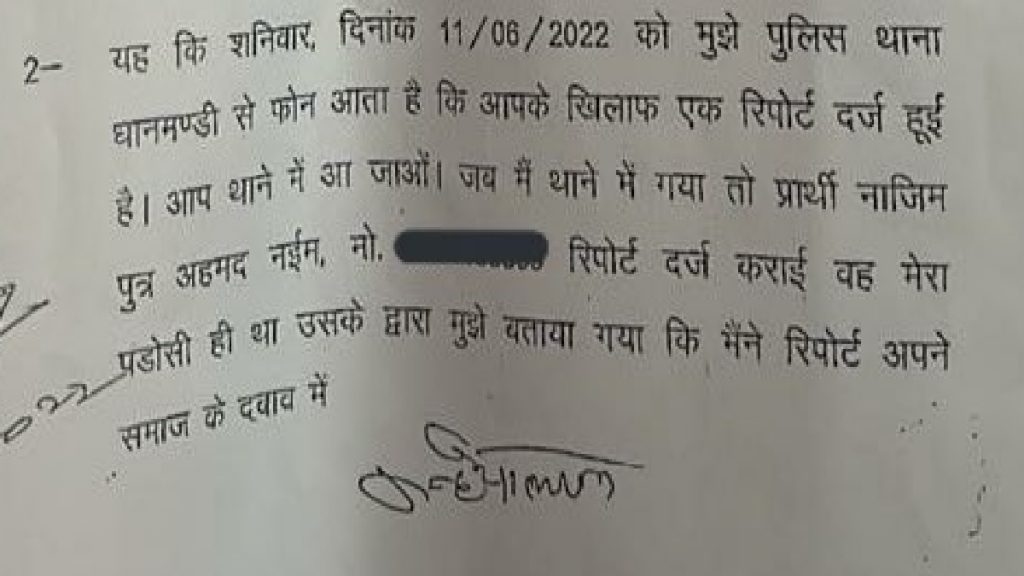 2- यह कि शनिवार, दिनांक 11/06/2022 को मुझे पुलिस थाना
घानमण्डी से फोन आता है कि आपके खिलाफ एक रिपोर्ट दर्ज हूई
है। आप थाने में आ जाओं। जब मैं थाने में गया तो प्रार्थी नाजिम
पुत्र अहमद नईम, नो. रिपोर्ट दर्ज कराई वह मेरा
पडोसी ही था उसके द्वारा मुझे बताया गया कि मैंने रिपोर्ट अपने
समाज के दवाव में
कन्हैयालाल